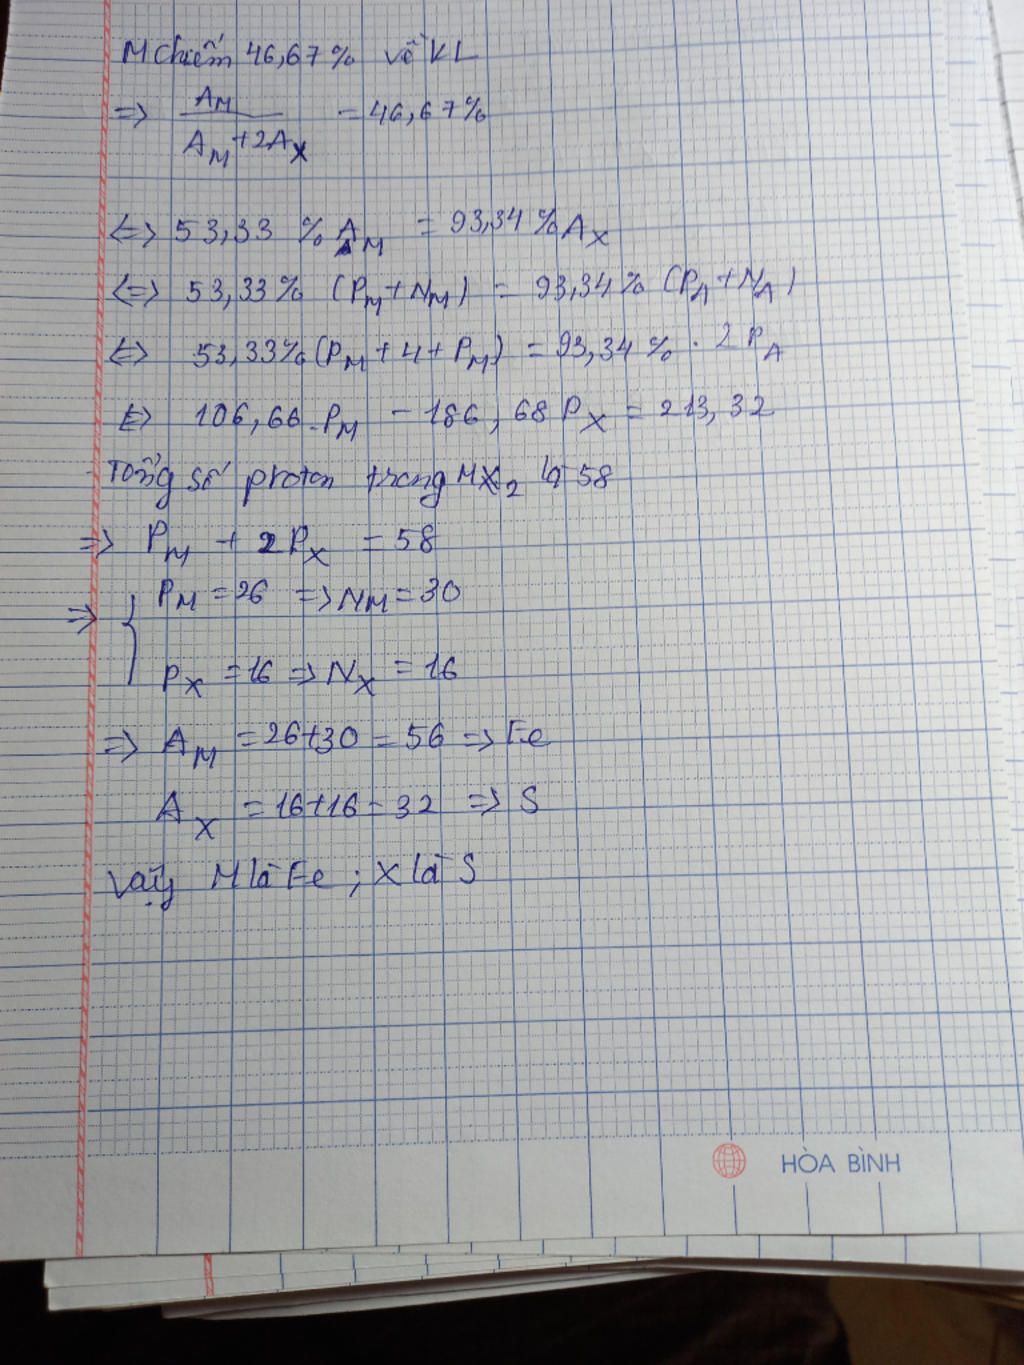 M chiếm 46,67% về KL
=> A_M / (A_M + 2A_X) = 46,67%
<=> 53,33 % A_M = 93,34 % A_X
<=> 53,33% (P_M + N_M) = 93,34% (P_A + N_A)
<=> 53,33% (P_M + 4 + P_M) = 93,34 % . 2 P_A
<=> 106,66 . P_M - 186,68 P_X = 213,32
Tổng số proton trong MX_2 là 58
=> P_M + 2P_X = 58
=> { P_M = 26 => N_M = 30
P_X = 16 => N_X = 16
=> A_M = 26+30 = 56 => Fe
A_X = 16+16 = 32 => S
Vậy M là Fe ; X là S
HÒA BÌNH